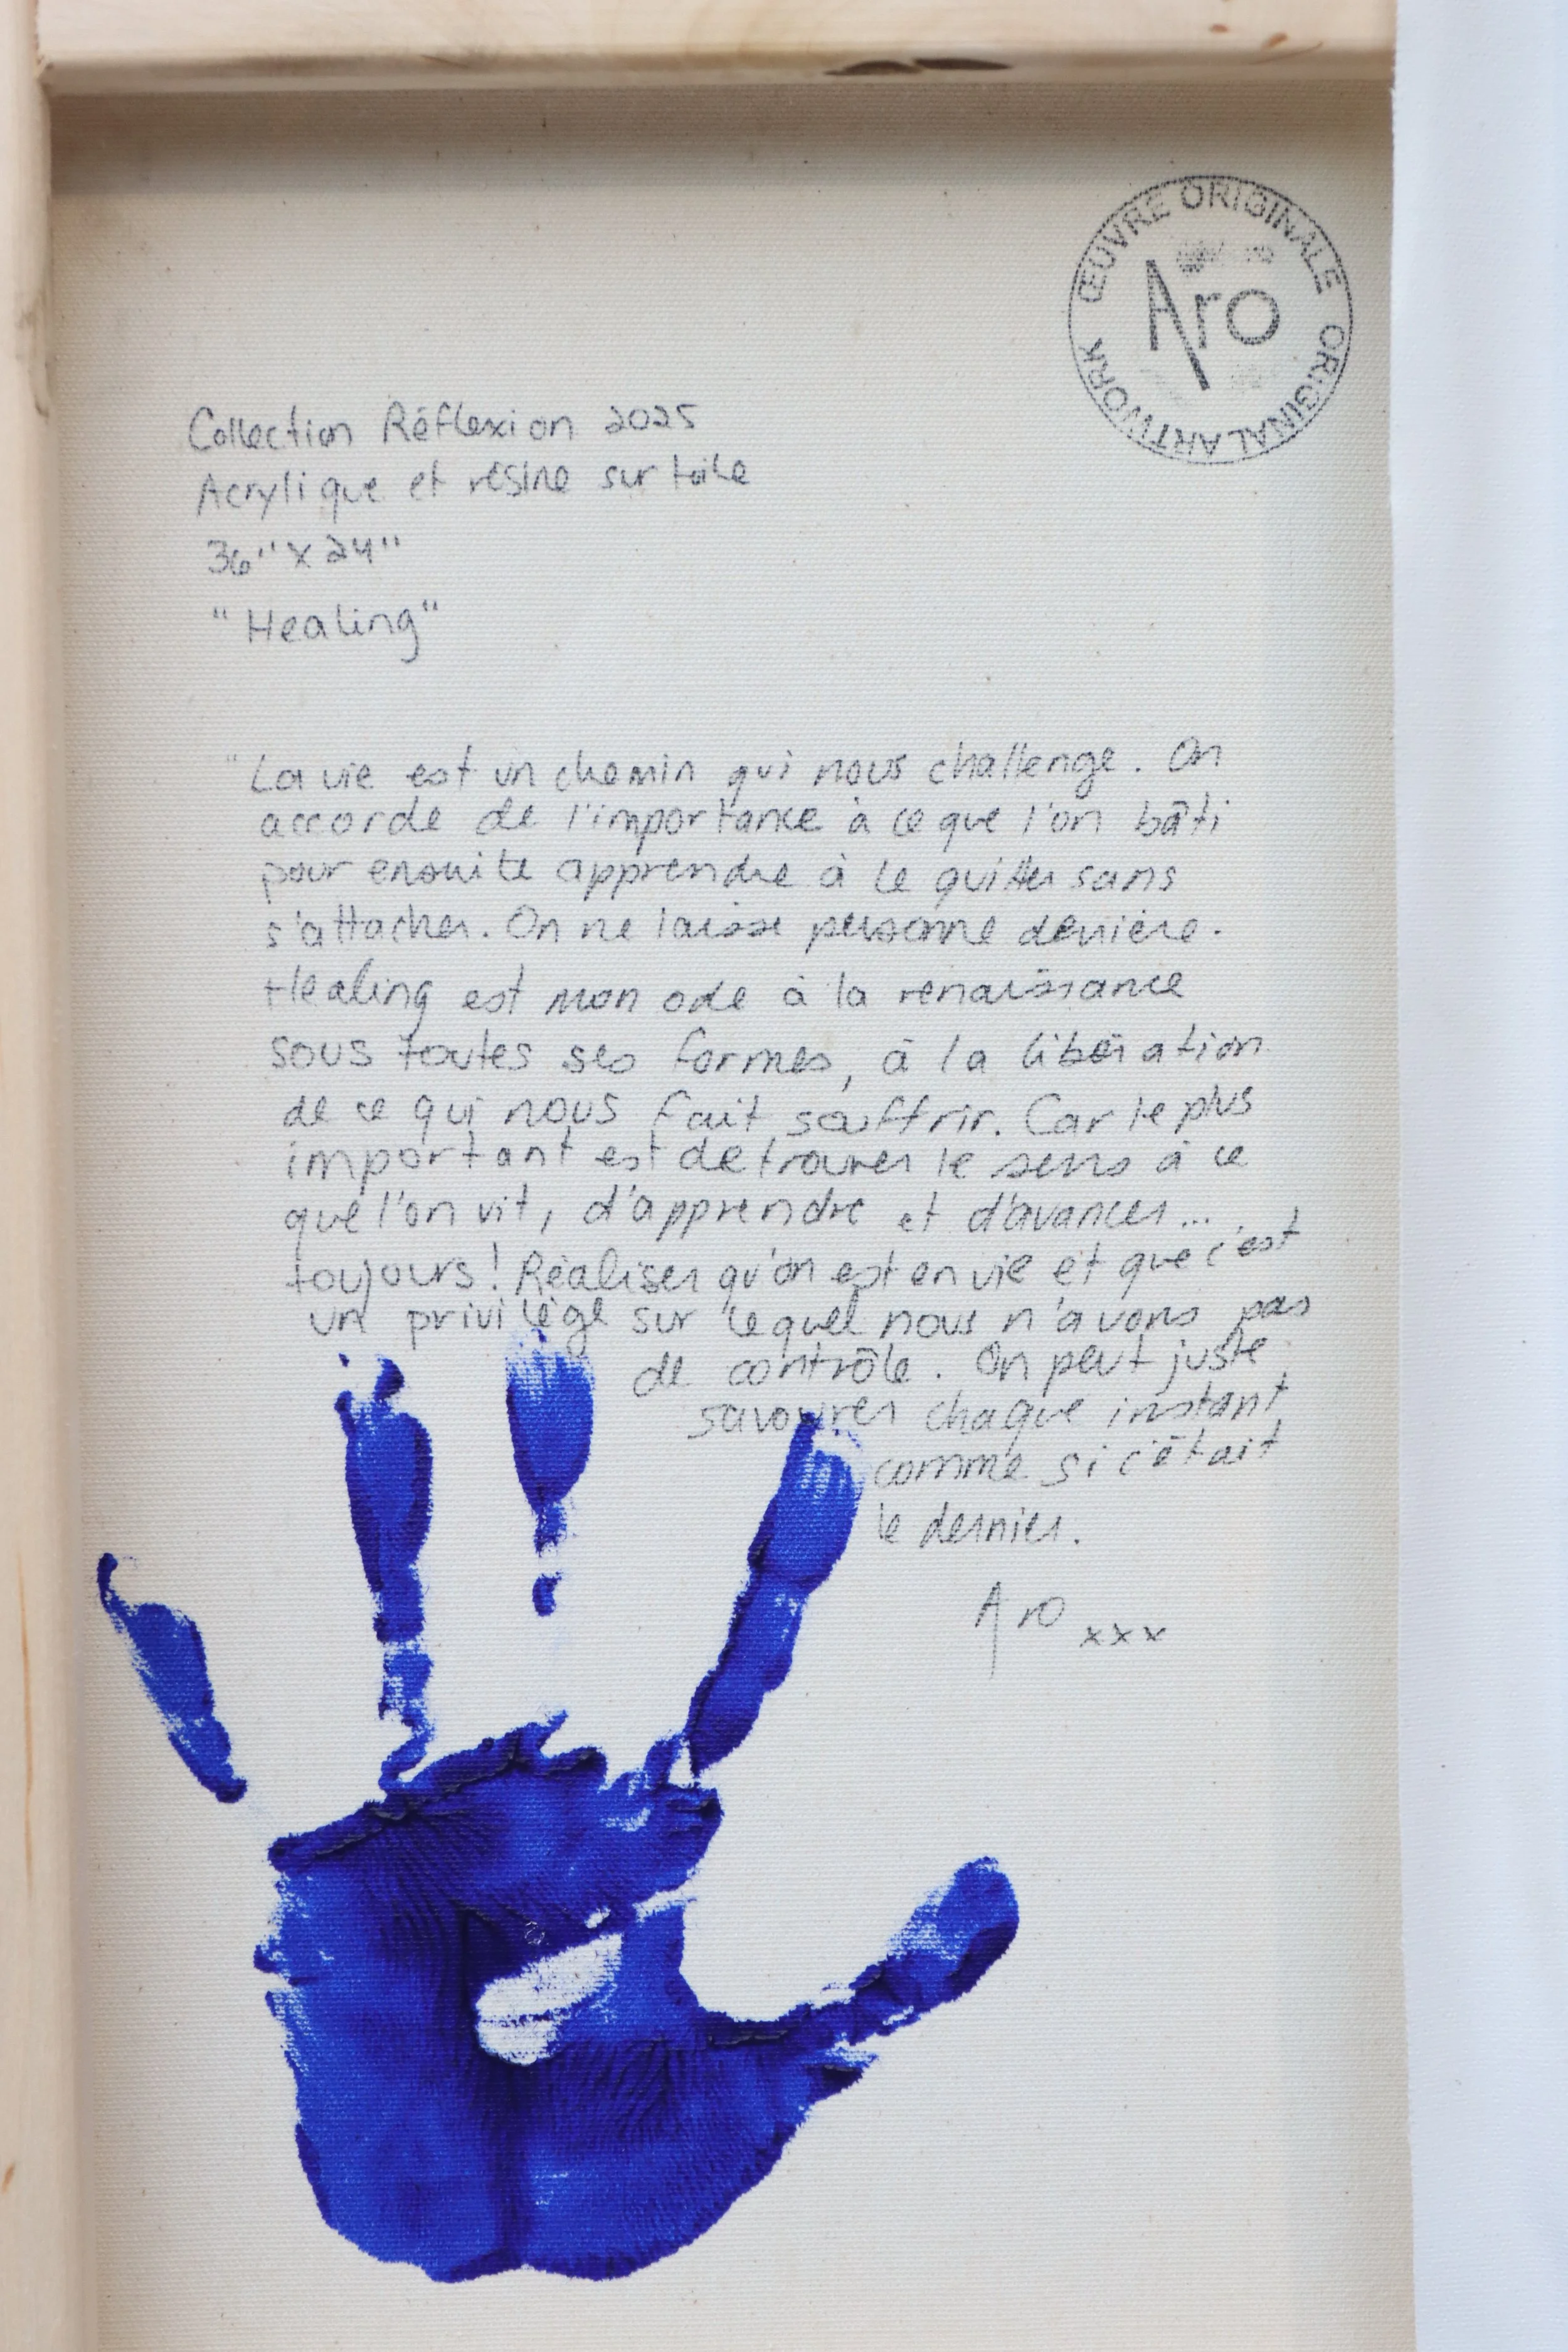 ŒUVRE ORIGINALE
Aro
ORIGINAL ARTWORK
Collection Réflexion 2025
Acrylique et résine sur toile
36" x 24"
"Healing"
"La vie est un chemin qui nous challenge. On
accorde de l'importance à ce que l'on bâti
pour ensuite apprendre à le quitter sans
s'attacher. On ne laisse personne derrière.
Healing est mon ode à la renaissance
sous toutes ses formes, à la libération
de ce qui nous fait souffrir. Car le plus
important est de trouver le sens à ce
que l'on vit, d'apprendre et d'avancer...
toujours! Réaliser qu'on est en vie et que c'est
un privilège sur lequel nous n'avons pas
de contrôle. On peut juste
savourer chaque instant
comme si c'était
le dernier.
Aro xxx